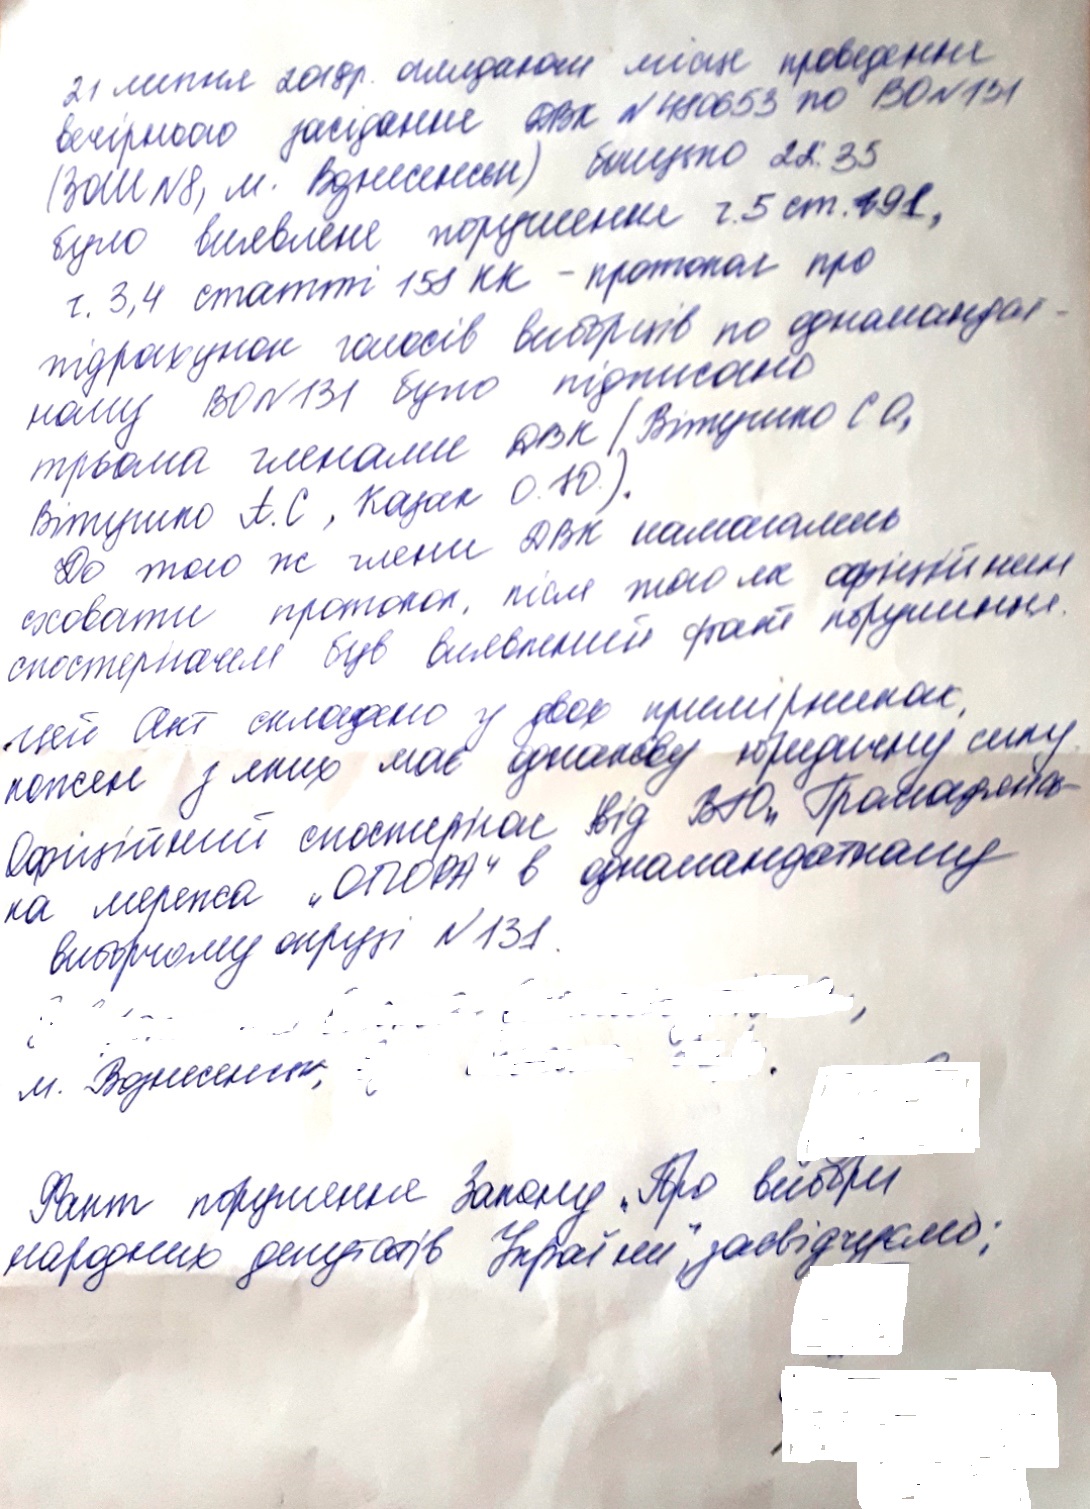 21 липня 2019р. оглядаючи місце проведення
вечірнього засідання ДВК №480653 по ВО№131
(ЗОШ №8, м. Вознесенськ) близько 22:35
було виявлене порушення ч.5 ст. 91,
ч. 3,4 статті 158 КК - протокол про
підрахунок голосів виборців по одномандат-
ному ВО№131 було підписано
трьома членами ДВК (Вітушко С О,
Вітушко А. С, Казак О. Ю.).
До того ж члени ДВК намагались
сховати протокол, після того як офіційним
спостерігачем був виявлений факт порушення.
Цей Акт складено у двох примірниках,
кожен з яких має однакову юридичну силу
Офіційний спостерігач від ВГО „Громадянсь-
ка мережа „ОПОРА“ в одномандатному
виборчому окрузі №131.
м. Вознесенськ,
Факт порушення Закону „Про вибори
народних депутатів України“, засвідчуємо: